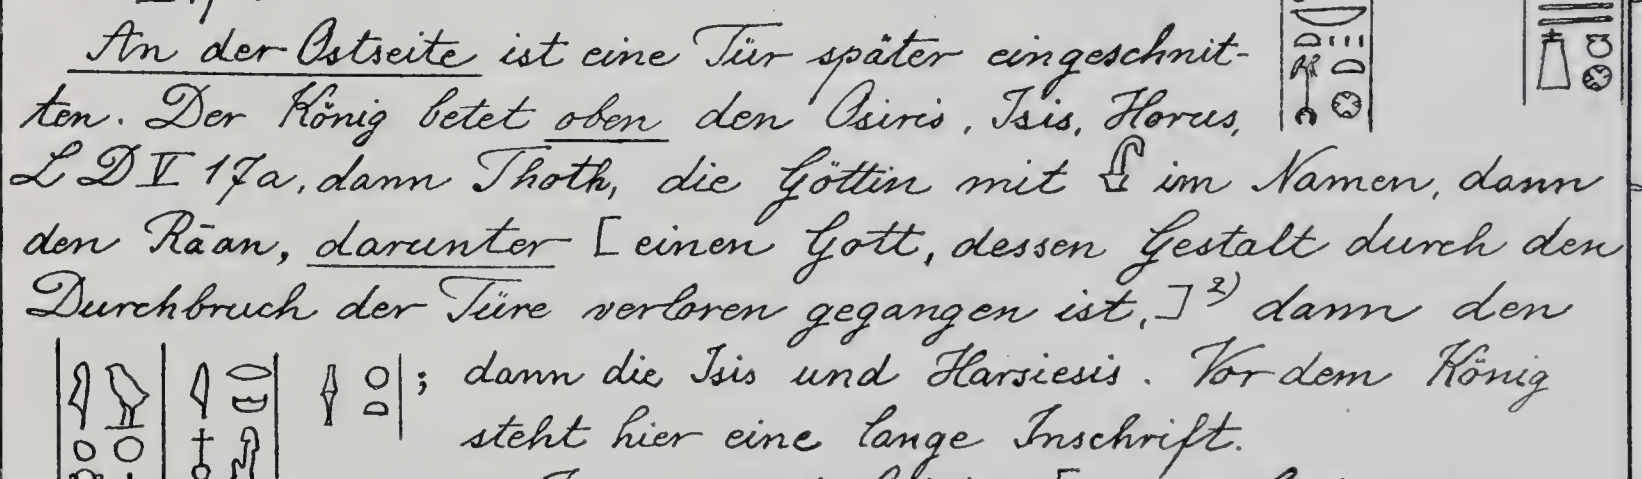 An der Ostseite ist eine Tür später eingeschnit-
ten. Der König betet oben den Osiris, Isis, Horus,
LD V 17a, dann Thoth, die Göttin mit im Namen, dann
den Rāan, darunter [einen Gott, dessen Gestalt durch den
Durchbruch der Türe verloren gegangen ist,]²⁾ dann den
; dann die Isis und Harsiesis. Vor dem König
steht hier eine lange Inschrift.